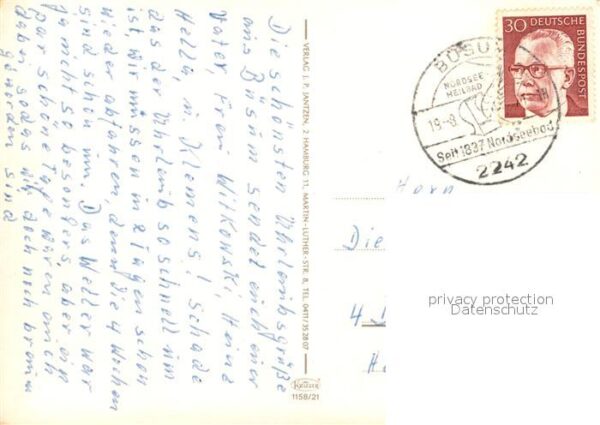 Die schönsten Urlaubsgrüße
aus Büsum sendet euch euer
Vater Frau Witkowski, Heinz
Hella, u. Klemens! Schade
das der Uhrlaub so schnell um
ist wir müssen in 2 Tagen schon
wieder abfahren, denn die 4 Wochen
sind schon um. Das Wetter war
ja nicht so besonders, aber ein
par schöne Tage waren auch
dabei, sodas wir doch noch braun
geworden sind
VERLAG J. P. JANTZEN, 2 HAMBURG 11, MARTIN-LUTHER-STR. 8, TEL. 0411/35 28 07
KRÜGER
1158/21
30 DEUTSCHE
BUNDESPOST
BÜSUM
NORDSEE
HEILBAD
19-8
18
Seit 1837 Nordseebad
2242
Die
4
privacy protection
Datenschutz